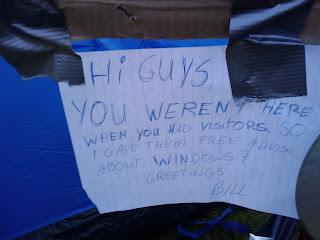 Hi GUYS,
YOU WEREN'T HERE
WHEN YOU HAD VISITORS. SO
I GAVE THEM FREE ADVISE
ABOUT WINDOWS 7
GREETINGS
BILL